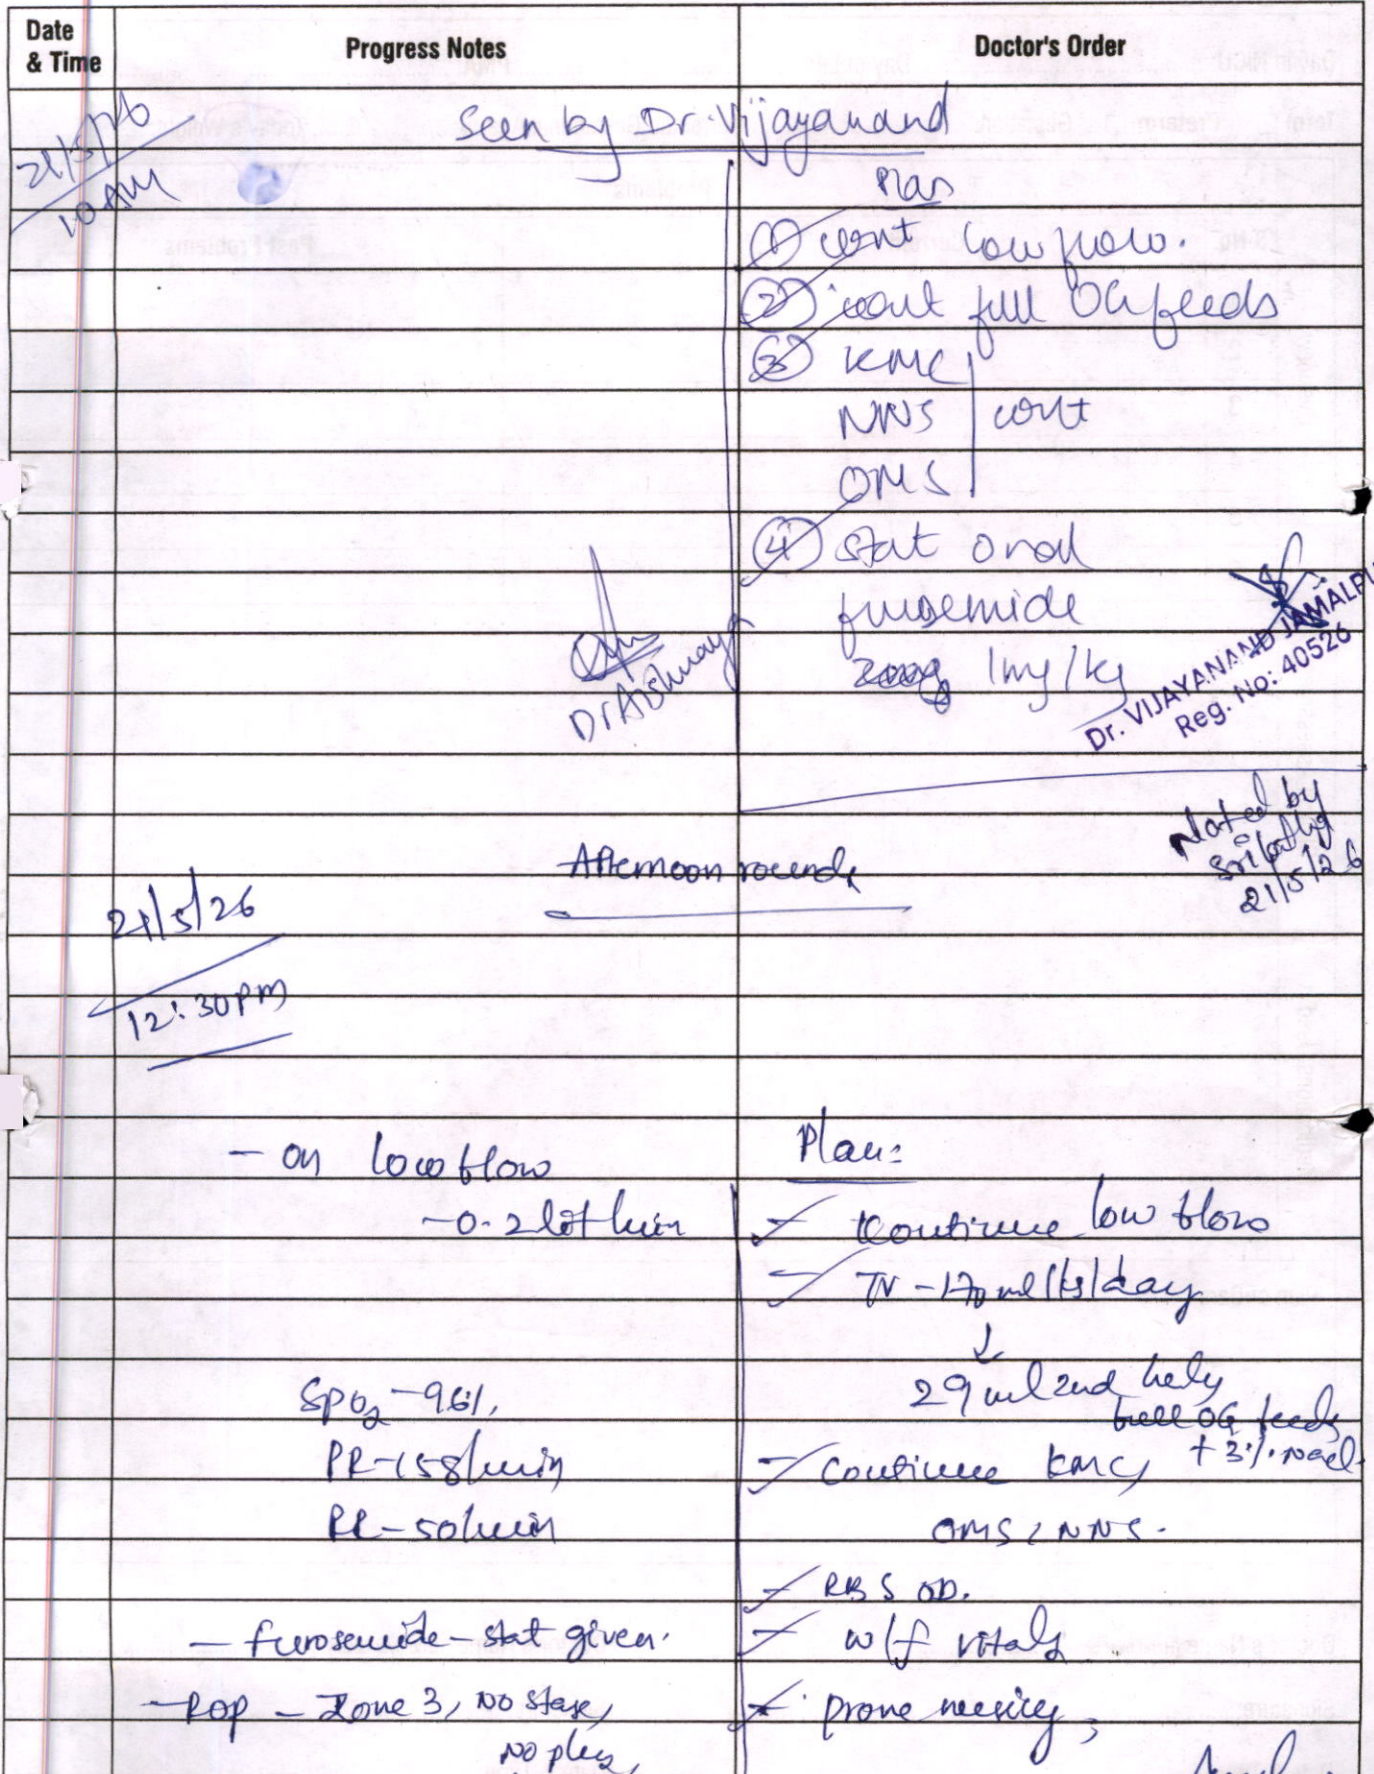 Date
& Time
Progress Notes
Doctor's Order
21/5/26
10 AM
Seen by Dr. Vijayanand
Plan
① cont low flow.
② cont full OG feeds
③ KMC
NNS cont
OMS
④ stat oral
furosemide
1mg/kg
Dr. VIJAYANAND JAMALPU
Reg. No: 40526
Noted by
21/5/26
Afternoon rounds
21/5/26
12:30pm
- on low flow
- 0.2 lit/min
SpO2 - 96%,
PR - 158/min
RR - 50/min
- furosemide - stat given.
- ROP - Zone 3, No stage,
No plus,
Plan:
- Continue low flow
- TV - 170 ml/kg/day
↓
29 ml 2nd hrly
full OG feeds
+ 3% Nacl.
- Continue KMC,
OMS, NNS.
- RBS OD.
- w/f vitals
- prone nursing,